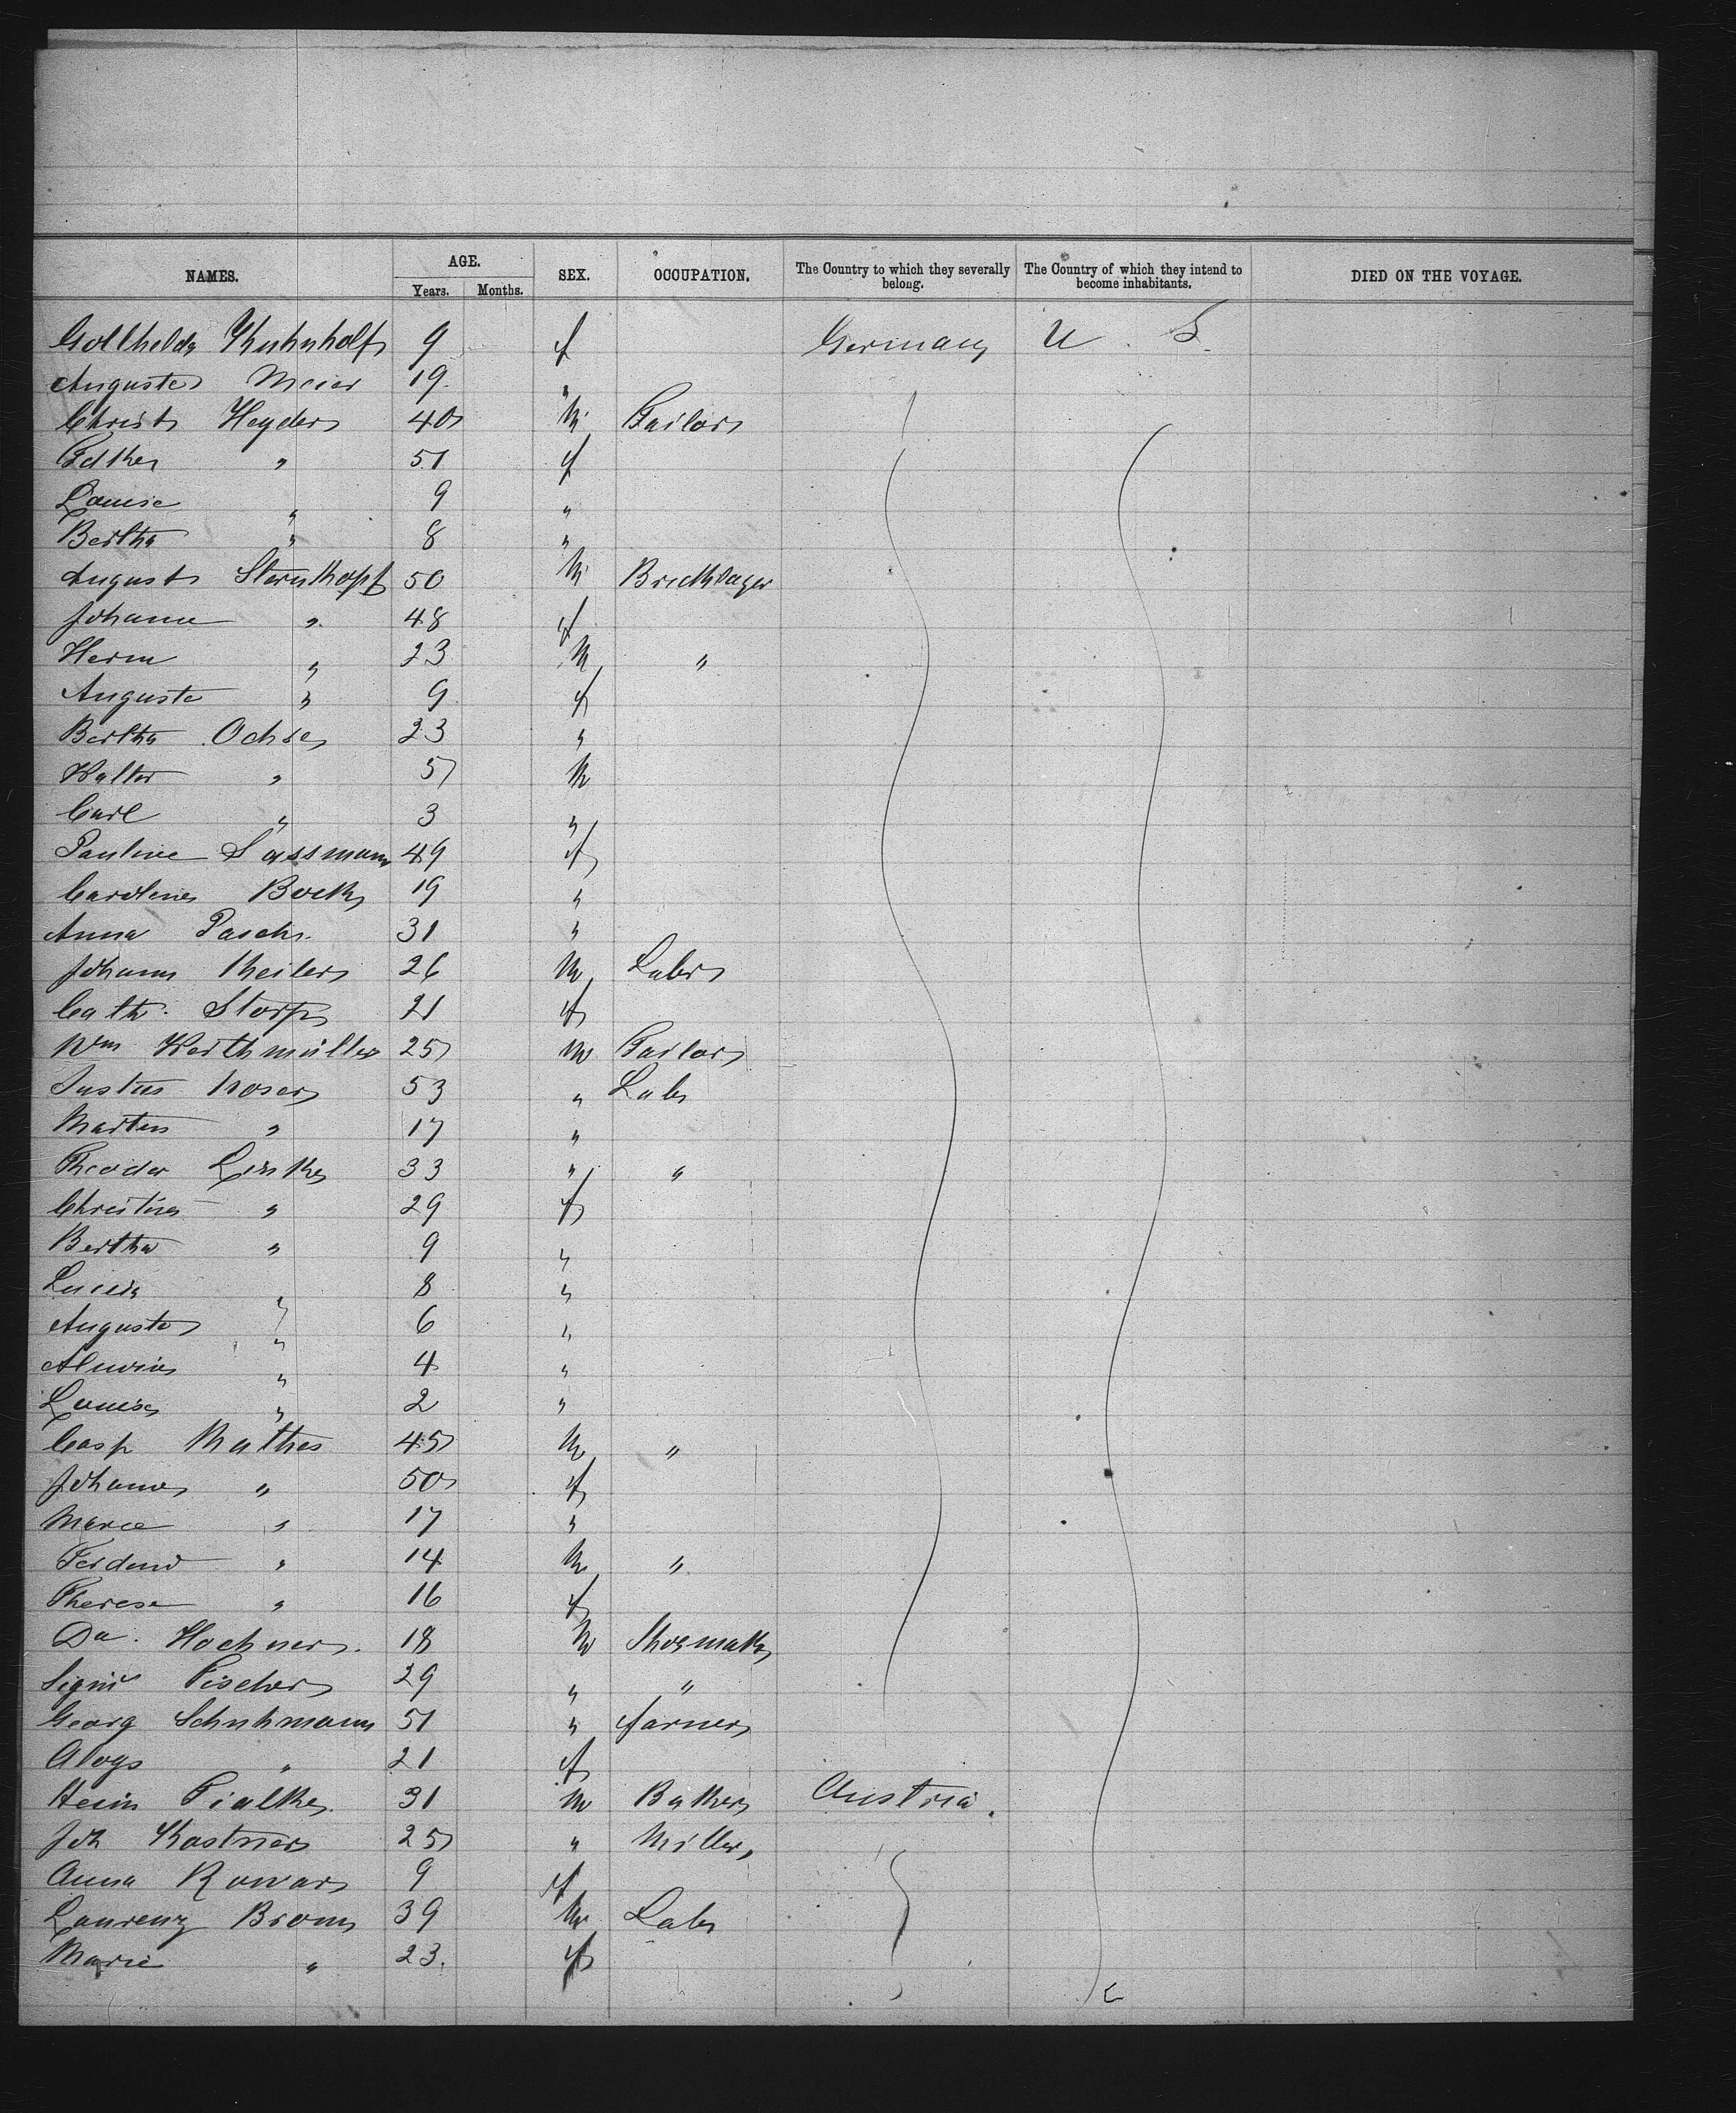 NAMES. AGE. SEX. OCCUPATION. The Country to which they severally belong. The Country of which they intend to become inhabitants. DIED ON THE VOYAGE.
Years. Months.
9 f Germany U. S.
Auguste Meier 19 "
Christ Heyder 40 m Tailor
" 51 f
Louise " 9 "
Bertha " 8 "
August Sternkopf 50 m
Johanne " 48 f
Herm " 23 m "
Auguste " 9 f
Bertha Ochse 23 "
Walter " 5 m
Carl " 3 "
Pauline Sassmann 49 f
Caroline Bock 19 "
Anna Pasch. 31 "
Johann Theiler 26 m Labr
Cath. Storp 21 f
Wm Werthmüller 25 m Tailor
Justus 53 " Labr
Martin " 17 "
Theodor Linke 33 " "
Christine " 29 f
Bertha " 9 "
" 8 "
Auguste " 6 "
Alwine " 4 "
Louise " 2 "
Casp Mathes 45 m "
Johanne " 50 f
Marie " 17 "
Ferdend " 14 m "
Therese " 16 f
Da. Hochner. 18 m Shoemak
Fischer 29 " "
Georg Schuhmann 51 " farmer
Aloys " 21 f
Heim Fialke. 31 m Baker Austria.
Joh Kastner 25 " Miller
Anna 9 f
Laurenz Brom 39 m Labr
Marie " 23. f